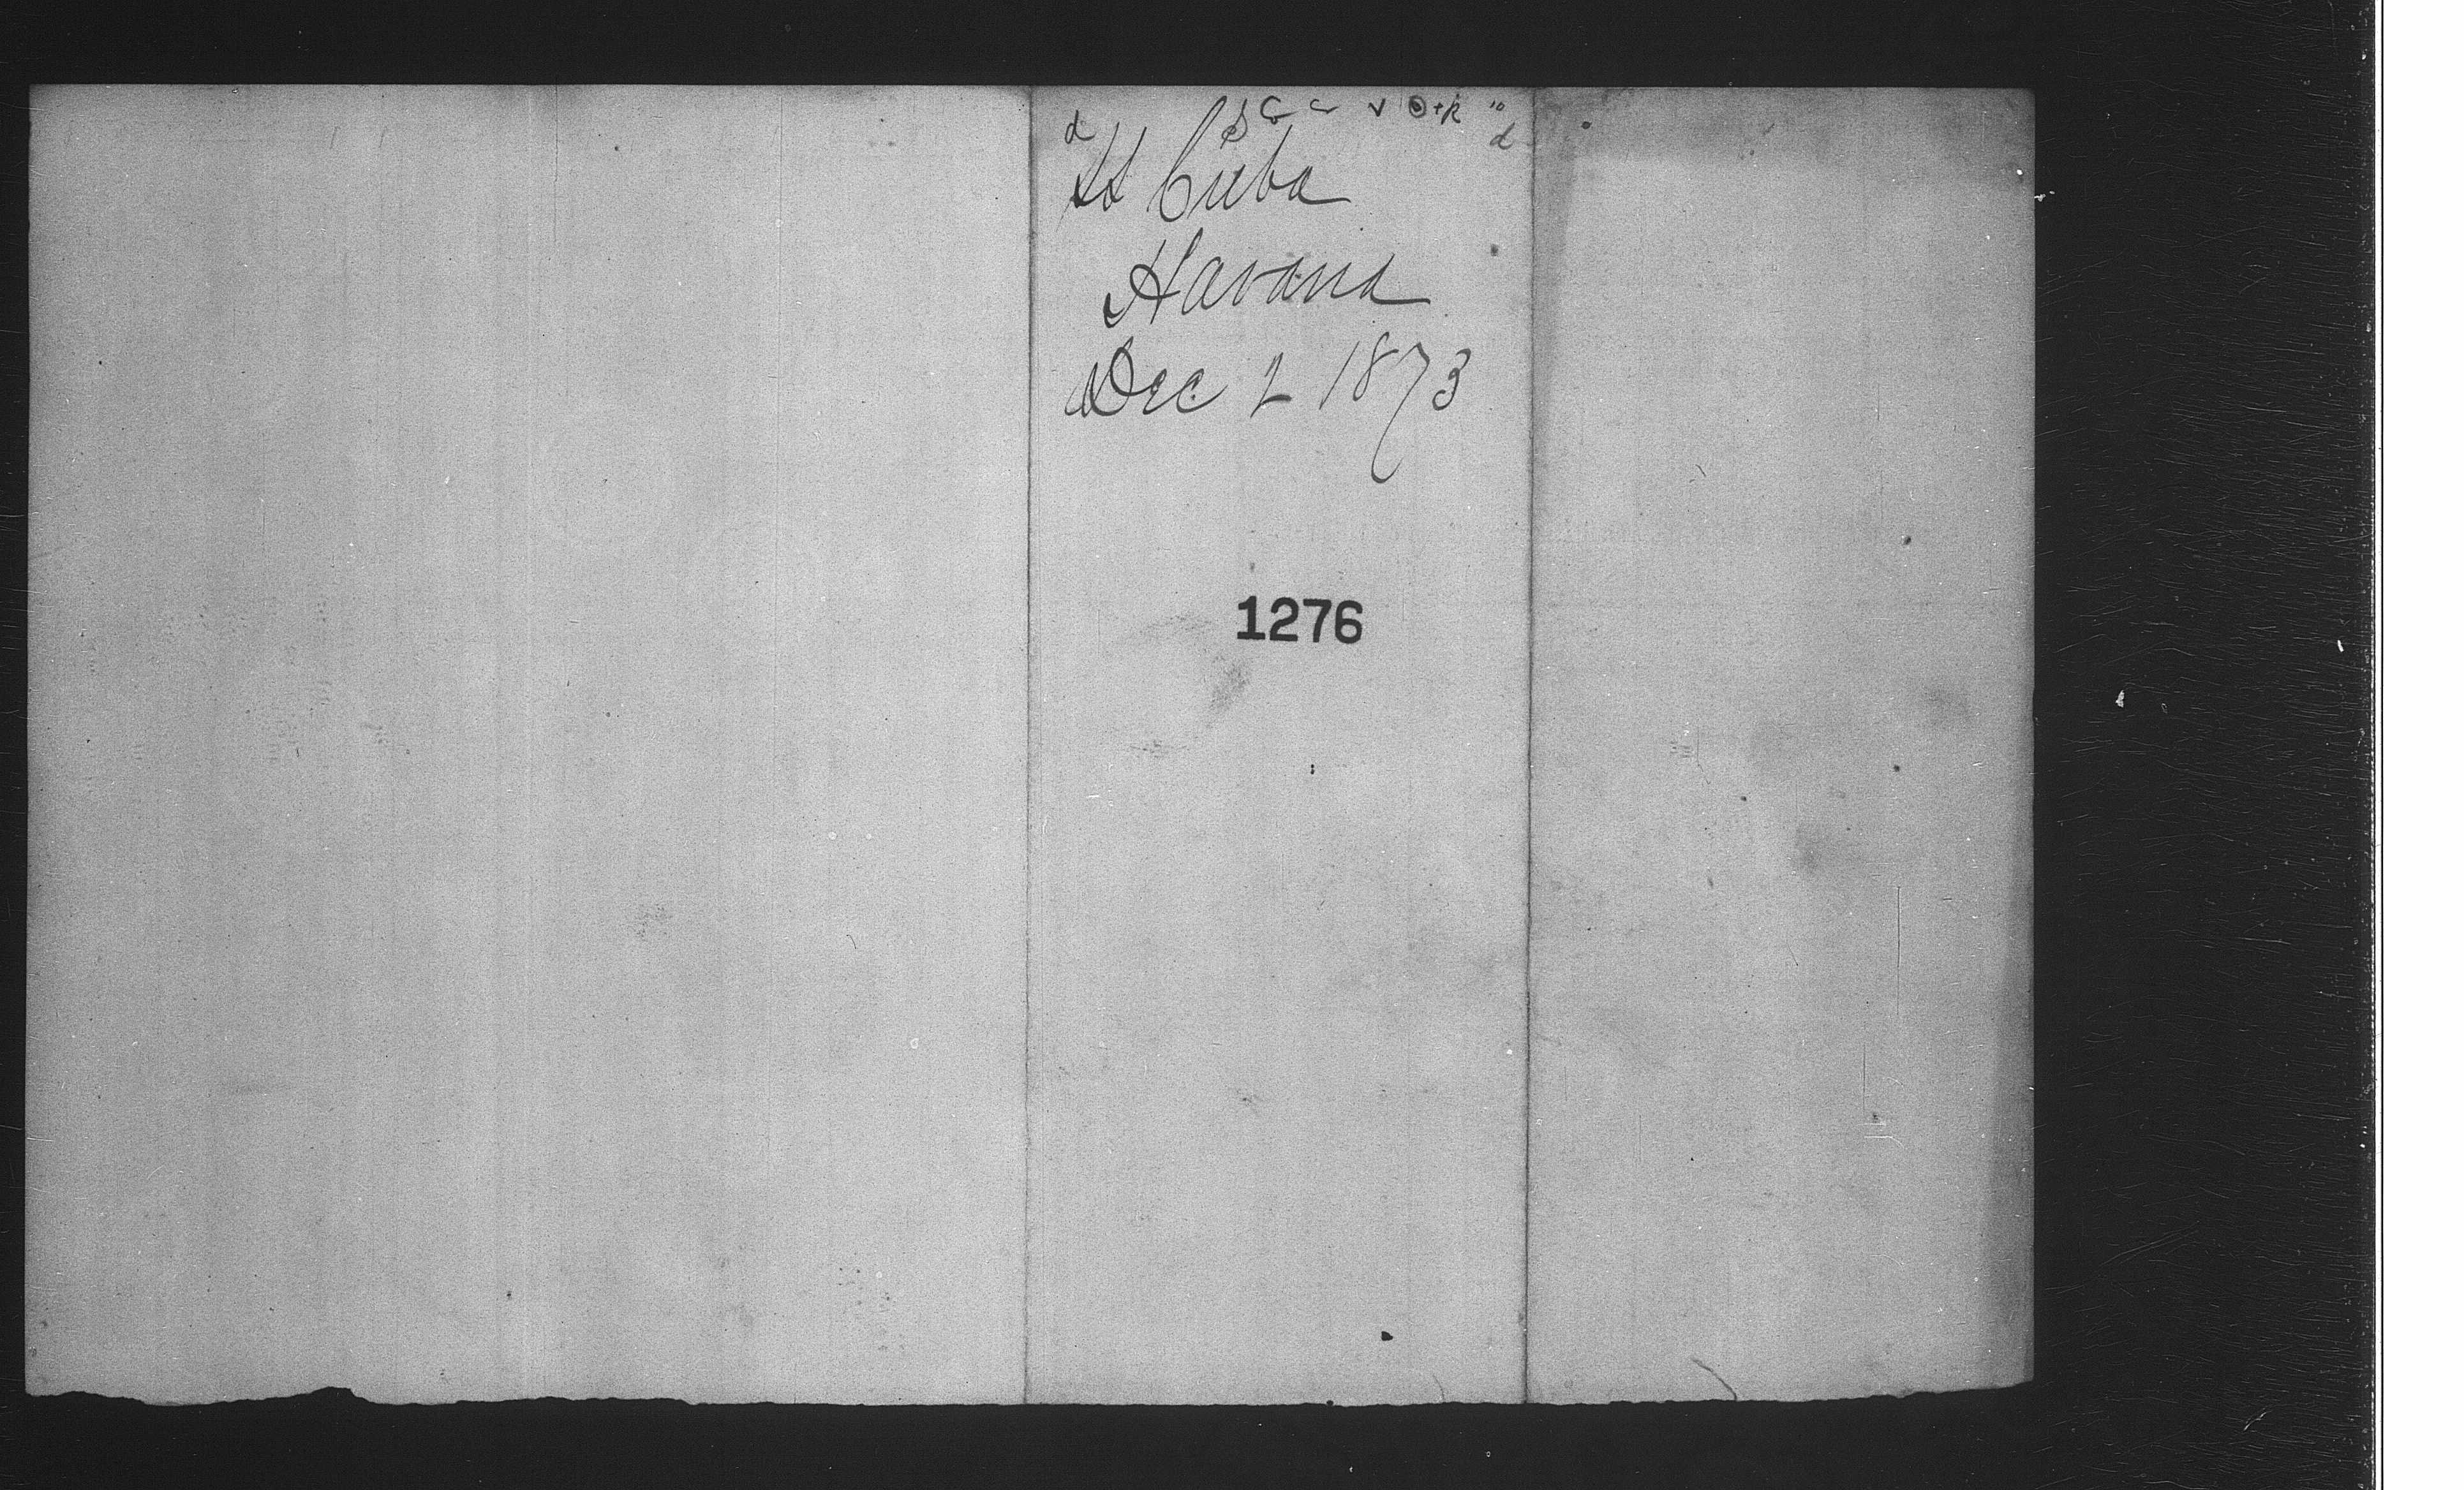 SS Cuba
Havana
Dec 2 1873
1276